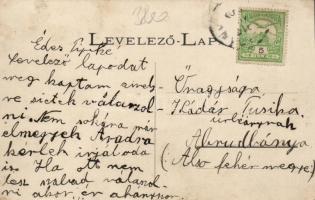 LEVELEZŐ-LAP
Édes Piriké
levelező lapodat
meg kaptam amely
re sietek válaszol
ni. Nem sokára már
elmegyek Aradra
kérlek irjál oda
is. Ha ott nem
lesz szabad válaszol
ni akkor
Önagysága
Kádár
urleánynak
Abrudbánya
(Alsó fehér megye)
5